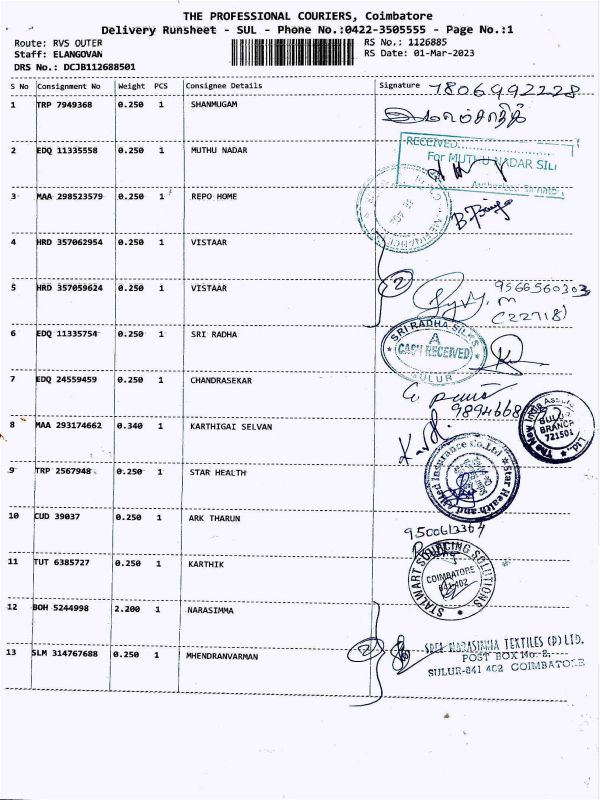 THE PROFESSIONAL COURIERS, Coimbatore
Delivery Runsheet - SUL - Phone No.:0422-3505555 - Page No.:1
Route: RVS OUTER
RS No.: 1126885
Staff: ELANGOVAN
RS Date: 01-Mar-2023
DRS No.: DCJB112688501
S No Consignment No Weight PCS Consignee Details Signature 7806992228
1 TRP 7949368 0.250 1 SHANMUGAM
2 EDQ 11335558 0.250 1 MUTHU NADAR
RECEIVED
For MUTHU NADAR SIL
Authorised Signato
3 MAA 298523579 0.250 1 REPO HOME
4 HRD 357062954 0.250 1 VISTAAR
5 HRD 357059624 0.250 1 VISTAAR
2 9566560303
(22718)
6 EDQ 11335754 0.250 1 SRI RADHA
SRI RADHA SILKS
A
CASH RECEIVED
SULUR
7 EDQ 24559459 0.250 1 CHANDRASEKAR
9894668
8 MAA 293174662 0.340 1 KARTHIGAI SELVAN
The New India Assura
Ltd.
SULUR
BRANCH
721501
9 TRP 2567948 0.250 1 STAR HEALTH
Star Health and Allied Insurance Co.Ltd
10 CUD 39037 0.250 1 ARK THARUN
9500613364
11 TUT 6385727 0.250 1 KARTHIK
STALWART SOURCING SOLUTIONS
COIMBATORE
641-402
12 BOH 5244998 2.200 1 NARASIMMA
13 SLM 314767688 0.250 1 MHENDRANVARMAN
2 SREE NARASIMHA TEXTILES (P) LTD.
POST BOX No-2,
SULUR-641 402 COIMBATORE